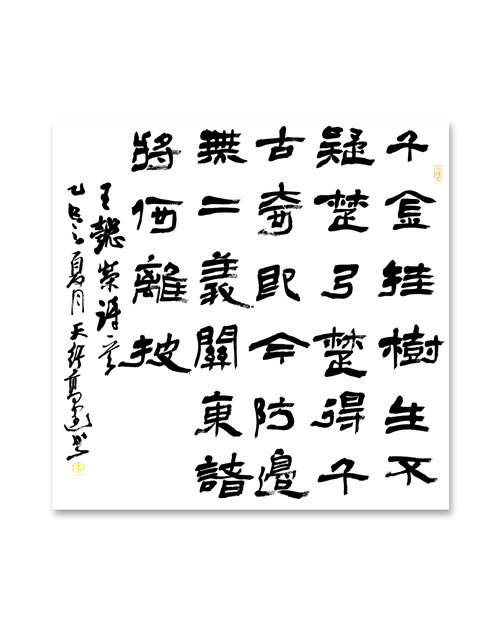 千金挂樹生不
疑楚弓楚得千
古奇即今防邊
無二義關東諸
將何離披
王懿榮詩一首
乙巳之夏月天行高書